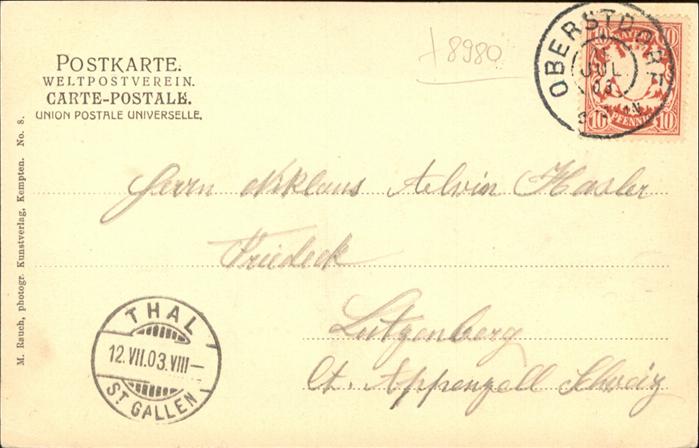 POSTKARTE.
WELTPOSTVEREIN.
CARTE-POSTALE.
UNION POSTALE UNIVERSELLE.
8980
OBERSTDORF
JUL
03
10 10
10 PFENNIG 10
Herrn Niklaus Alvin Hasler
Friedeck
Lutzenberg
Ct. Appenzell Schweiz
THAL
12.VII.03.VIII—
ST GALLEN
M. Rauch, photogr. Kunstverlag, Kempten. No. 8.